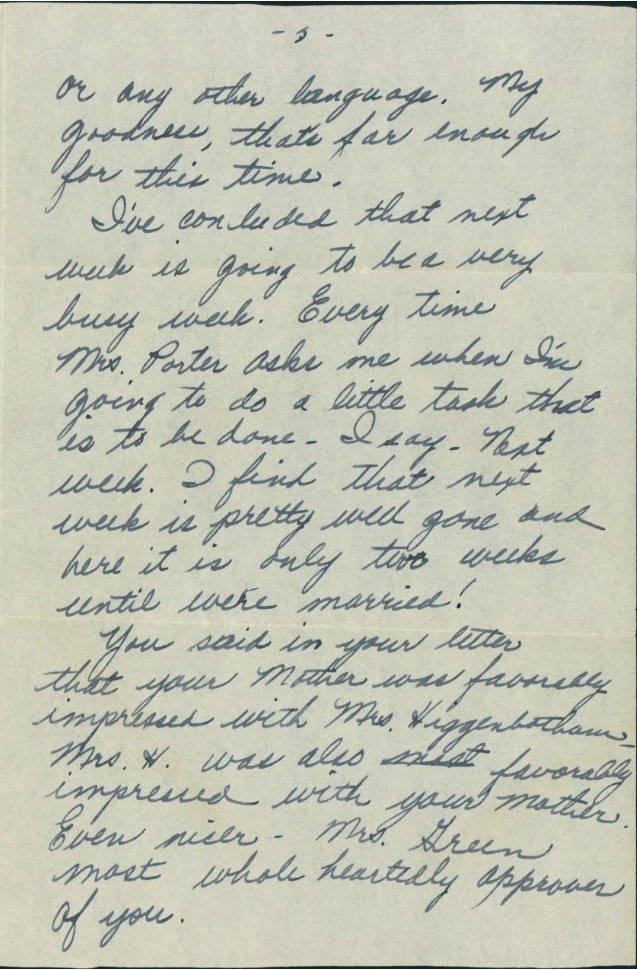 - 5 -
or any other language. My
goodness, that's far enough
for this time.
I've concluded that next
week is going to be a very
busy week. Every time
Mrs. Porter asks me when I'm
going to do a little task that
is to be done - I say - Next
week. I find that next
week is pretty well gone and
here it is only two weeks
until we're married!
You said in your letter
that your Mother was favorably
impressed with Mrs. Higgenbotham -
Mrs. H. was also most favorably
impressed with your mother.
Even nicer - Mrs. Green
most whole heartedly approves
of you.